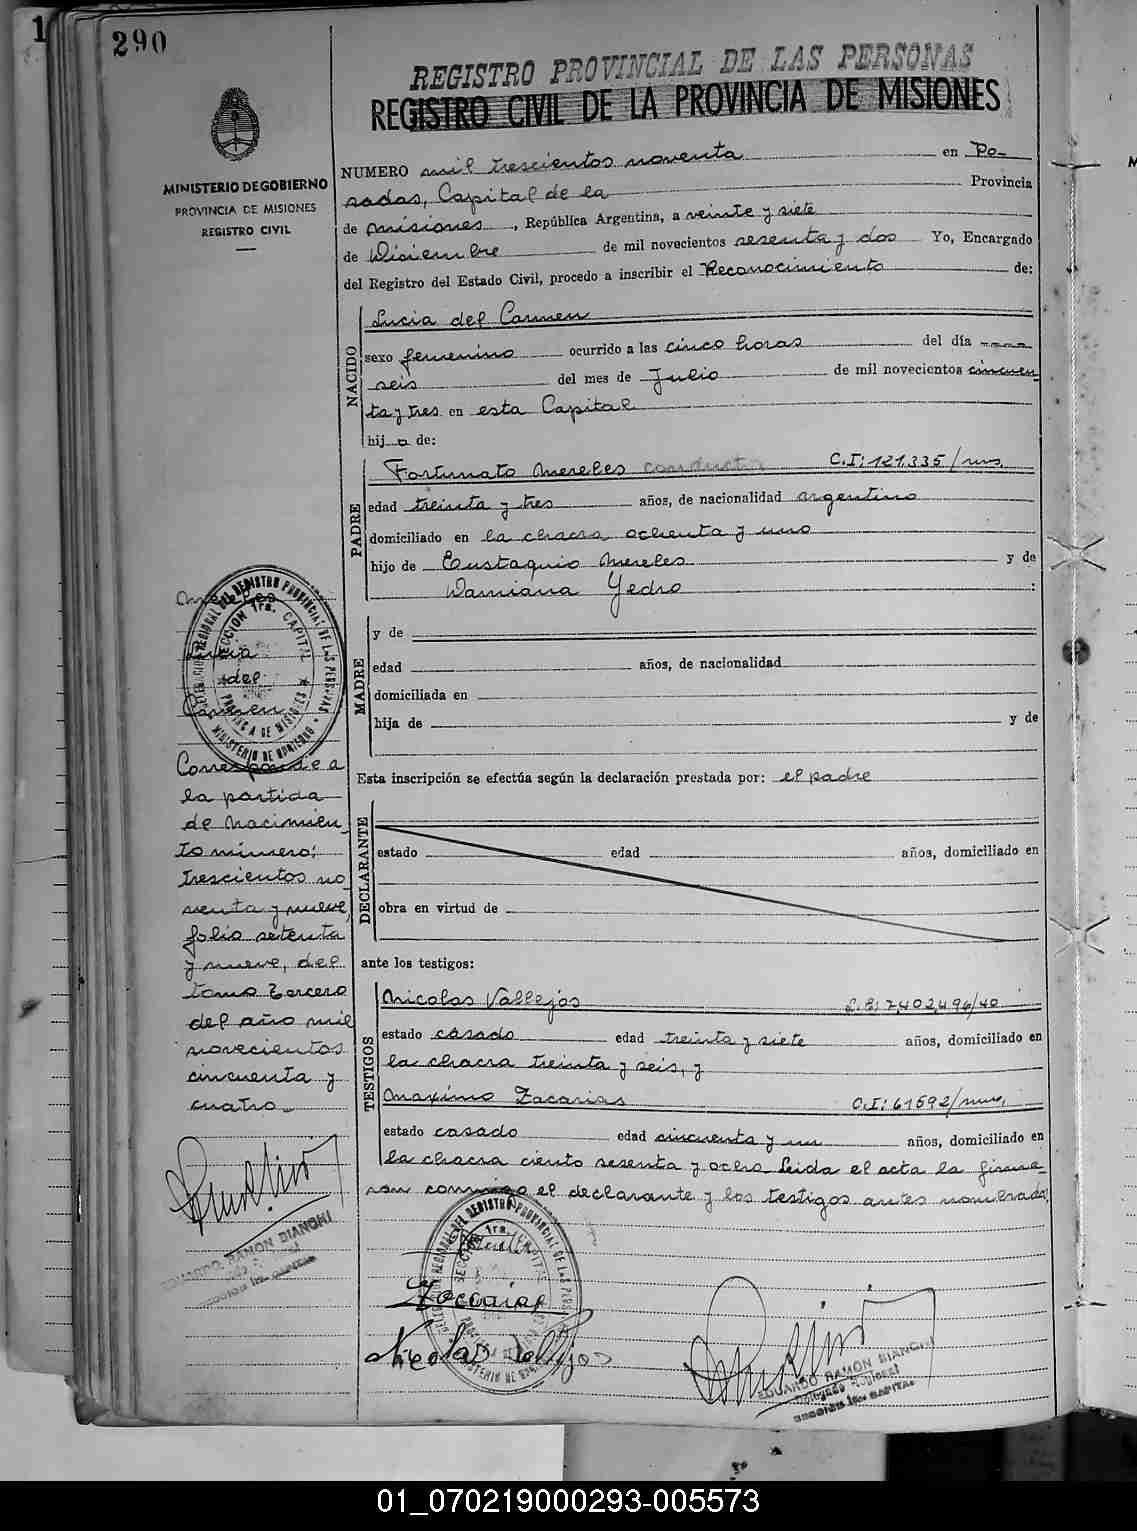 1
290
REGISTRO PROVINCIAL DE LAS PERSONAS
REGISTRO CIVIL DE LA PROVINCIA DE MISIONES
MINISTERIO DE GOBIERNO
PROVINCIA DE MISIONES
REGISTRO CIVIL
NUMERO mil trescientos noventa en Po-
sadas, Capital de la Provincia
de Misiones, República Argentina, a veinte y siete
de Diciembre de mil novecientos sesenta y dos Yo, Encargado
del Registro del Estado Civil, procedo a inscribir el Reconocimiento de:
NACIDO
Lucia del Carmen
sexo femenino ocurrido a las cinco horas del día
seis del mes de Julio de mil novecientos cincuen
ta y tres en esta Capital
hija de:
PADRE
Fortunato Mereles C.I: 121.335/mns.
edad treinta y tres años, de nacionalidad argentino
domiciliado en la chacra ochenta y uno
hijo de Eustaquio Mereles y de
Damiana Yedro :
MADRE
y de
edad años, de nacionalidad
domiciliada en
hija de y de
Esta inscripción se efectúa según la declaración prestada por: el padre
DECLARANTE
estado edad años, domiciliado en
obra en virtud de
ante los testigos:
TESTIGOS
Nicolas Vallejos 7,402,496/40
estado casado edad treinta y siete años, domiciliado en
la chacra treinta y seis, y
Maximo Zacarias C.I: 61592/mns.
estado casado edad cincuenta y un años, domiciliado en
la chacra ciento sesenta y ocho. Leida el acta la firma-
ron conmigo el declarante y los testigos antes nombrados.
Mereles
Lucia
del
Carmen
Corresponde a
la partida
de Nacimien
to número:
trescientos no
venta y nueve,
folio setenta
y nueve, del
tomo tercero
del año mil
novecientos
cincuenta y
cuatro.
DELEGACION REGIONAL DEL REGISTRO PROVINCIAL DE LAS PERSONAS
SECCION 1ra. CAPITAL
PROVINCIA DE MISIONES
MINISTERIO DE GOBIERNO
EDUARDO RAMON BIANCHI
SECCION 1ra. CAPITAL
Zacarias
Nicolas Vallejos
EDUARDO RAMON BIANCHI
Delegado Regional
SECCION 1ra. CAPITAL
01_070219000293-005573